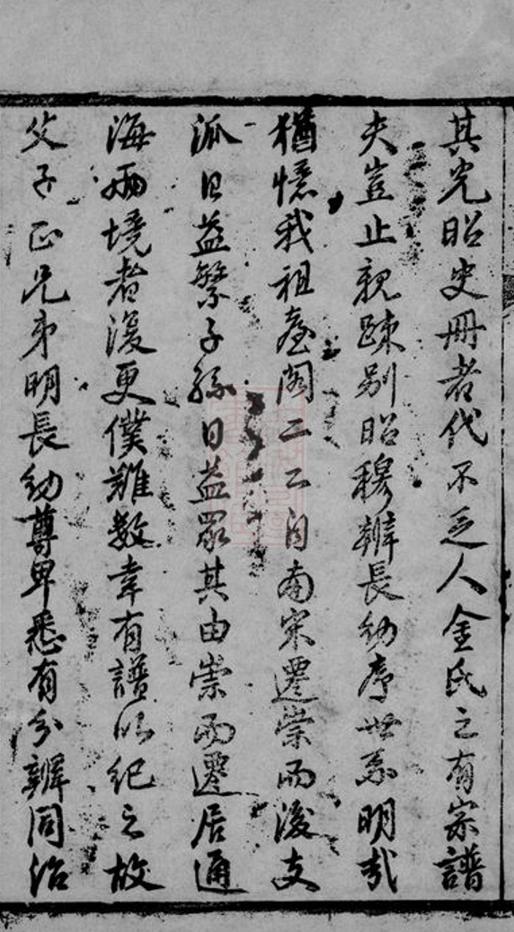 其光昭史冊者代不乏人金氏之有宗譜
夫豈止親踈别昭穆辨長幼序世系明哉
猶憶我祖臺閣二公自南宋遷崇而後支
派日益繁子孫日益眾其由崇而遷居通
海兩境者復更僕難数幸有譜以紀之故
父子正兄弟明長幼尊卑悉有分辨同治